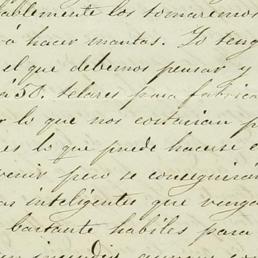 ablemente los tomaremos
á hacer mantas. Yo teng
el que debemos pensar y
a 50. telares para fabrica
r lo que nos convian p
es lo que puede hacerse e
venir pero se conseguirá
as inteligentes que venga
bastante habiles para